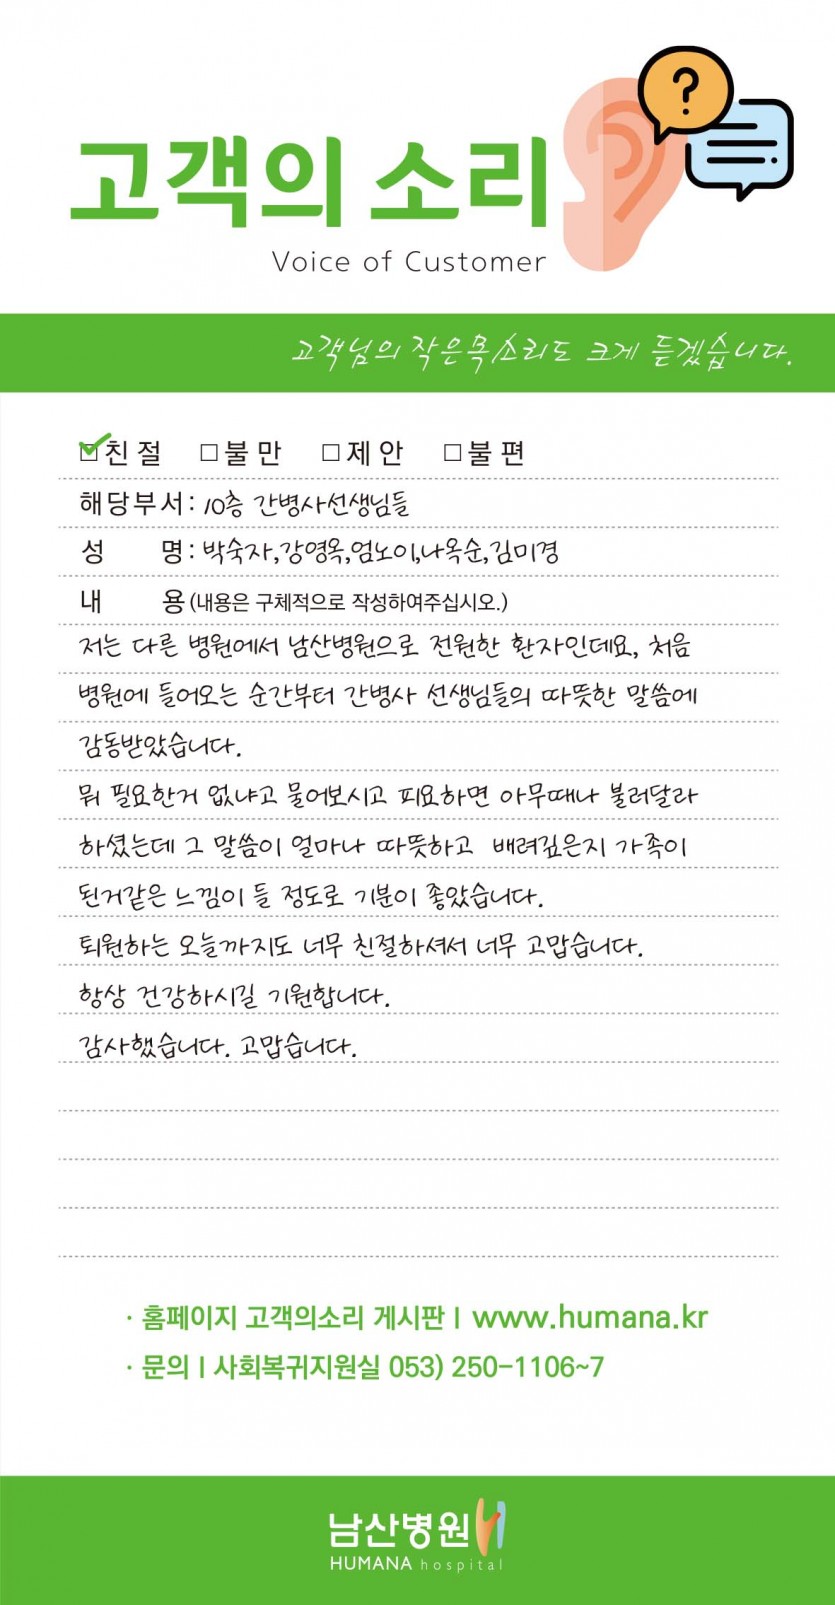 고객의 소리
Voice of Customer
고객님의 작은목소리도 크게 듣겠습니다.
☑친절 □불만 □제안 □불편
해당부서: 10층 간병사선생님들
성 명: 박숙자,강영옥,엄노이,나옥순,김미경
내 용(내용은 구체적으로 작성하여주십시오.)
저는 다른 병원에서 남산병원으로 전원한 환자인데요, 처음
병원에 들어오는 순간부터 간병사 선생님들의 따뜻한 말씀에
감동받았습니다.
뭐 필요한거 없냐고 물어보시고 피요하면 아무때나 불러달라
하셨는데 그 말씀이 얼마나 따뜻하고 배려깊은지 가족이
된거같은 느낌이 들 정도로 기분이 좋았습니다.
퇴원하는 오늘까지도 너무 친절하셔서 너무 고맙습니다.
항상 건강하시길 기원합니다.
감사했습니다. 고맙습니다.
· 홈페이지 고객의소리 게시판 | www.humana.kr
· 문의 | 사회복귀지원실 053) 250-1106~7
남산병원
HUMANA hospital